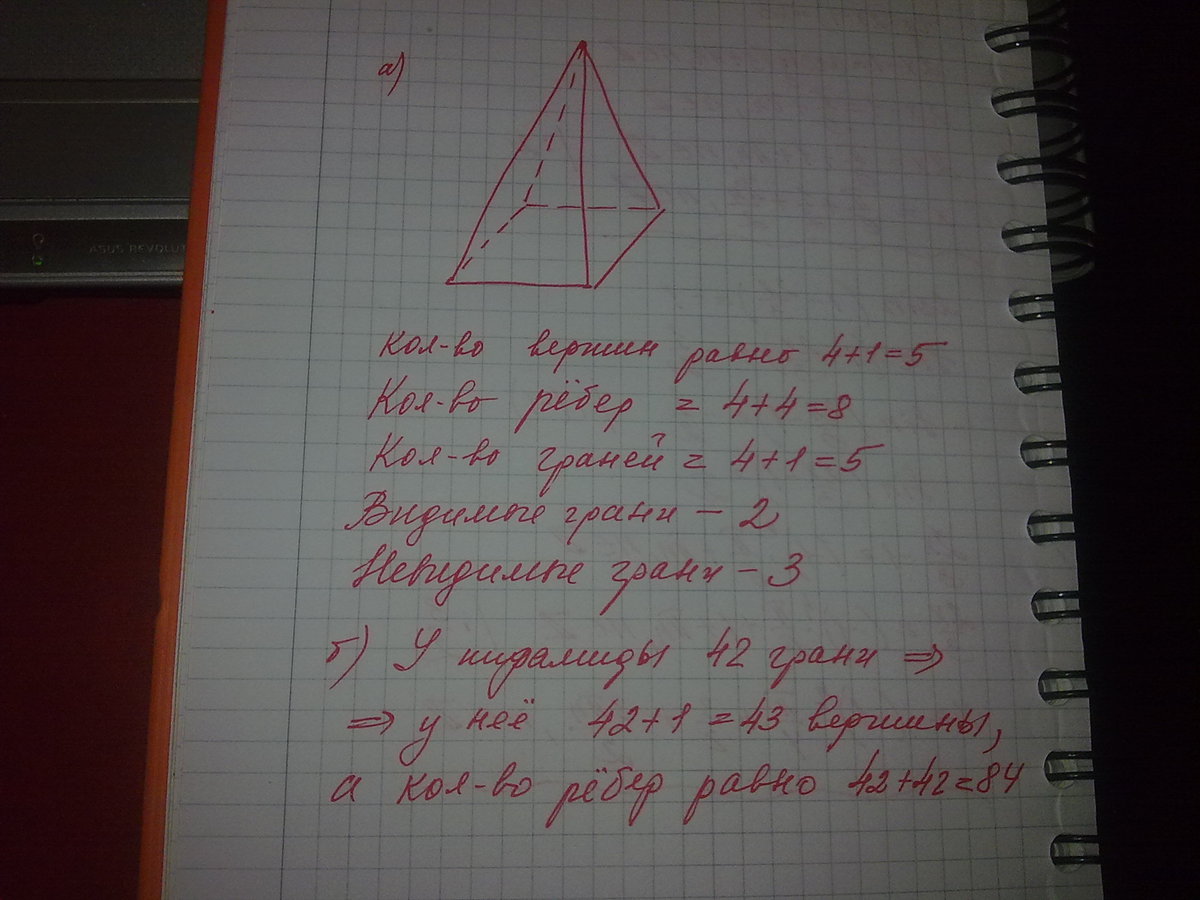 ASUS REVOLUT
а)
Кол-во вершин равно 4+1=5
Кол-во рёбер = 4+4=8
Кол-во граней = 4+1=5
Видимые грани - 2
Невидимые грани - 3
б) У пирамиды 42 грани ⇒
⇒ у неё 42+1=43 вершины,
а кол-во рёбер равно 42+42=84